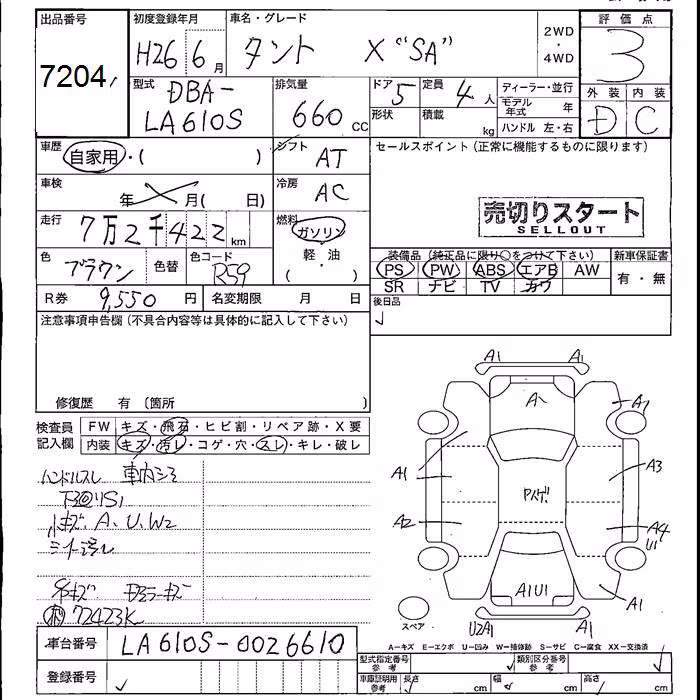 出品番号 初度登録年月 車名・グレード 評価点
7204, H26 6月 タント X "SA" 2WD・4WD 3
型式 排気量 ドア 定員 ディーラー・並行 外装 内装
DBA-
LA610S 660 cc 5 4人 モデル年式 年 D C
形状 積載 kg ハンドル 左・右
車歴 自家用・( ) シフト AT セールスポイント(正常に機能するものに限ります)
車検 年 月( 日) 冷房 AC
売切りスタート
SELLOUT
走行 7万2千422km 燃料 ガソリン・軽・油 ( )
装備品(純正品に限り○をつけて下さい) 新車保証書
色 ブラウン 色替 色コード R59
PS PW ABS エアB AW 有・無
SR ナビ TV カワ
R券 9,550円 名変期限 月 日 後日品
注意事項申告欄(不具合内容等は具体的に記入して下さい)
修復歴 有 〔箇所 〕
検査員記入欄 FW キズ・飛石・ヒビ割・リペア跡・X要
内装 キズ・汚レ・コゲ・穴・スレ・キレ・破レ
ハンドルスレ 車内シミ
S1
小キズ、A、U、W2
シート汚レ
ドアミラーキズ
72423K
A1 A1
A A1
A1 A3
Pハゲ
A2 A4
U1
A1U1 A1
スペア U2A1 A1
A=キズ E=エクボ U=凹み W=補修跡 S=サビ C=腐食 XX=交換済
車台番号 LA610S-0026610
型式指定番号 参考 類別区分番号 参考
登録番号 車庫証明用 参考 長さ cm 幅 cm 高さ cm